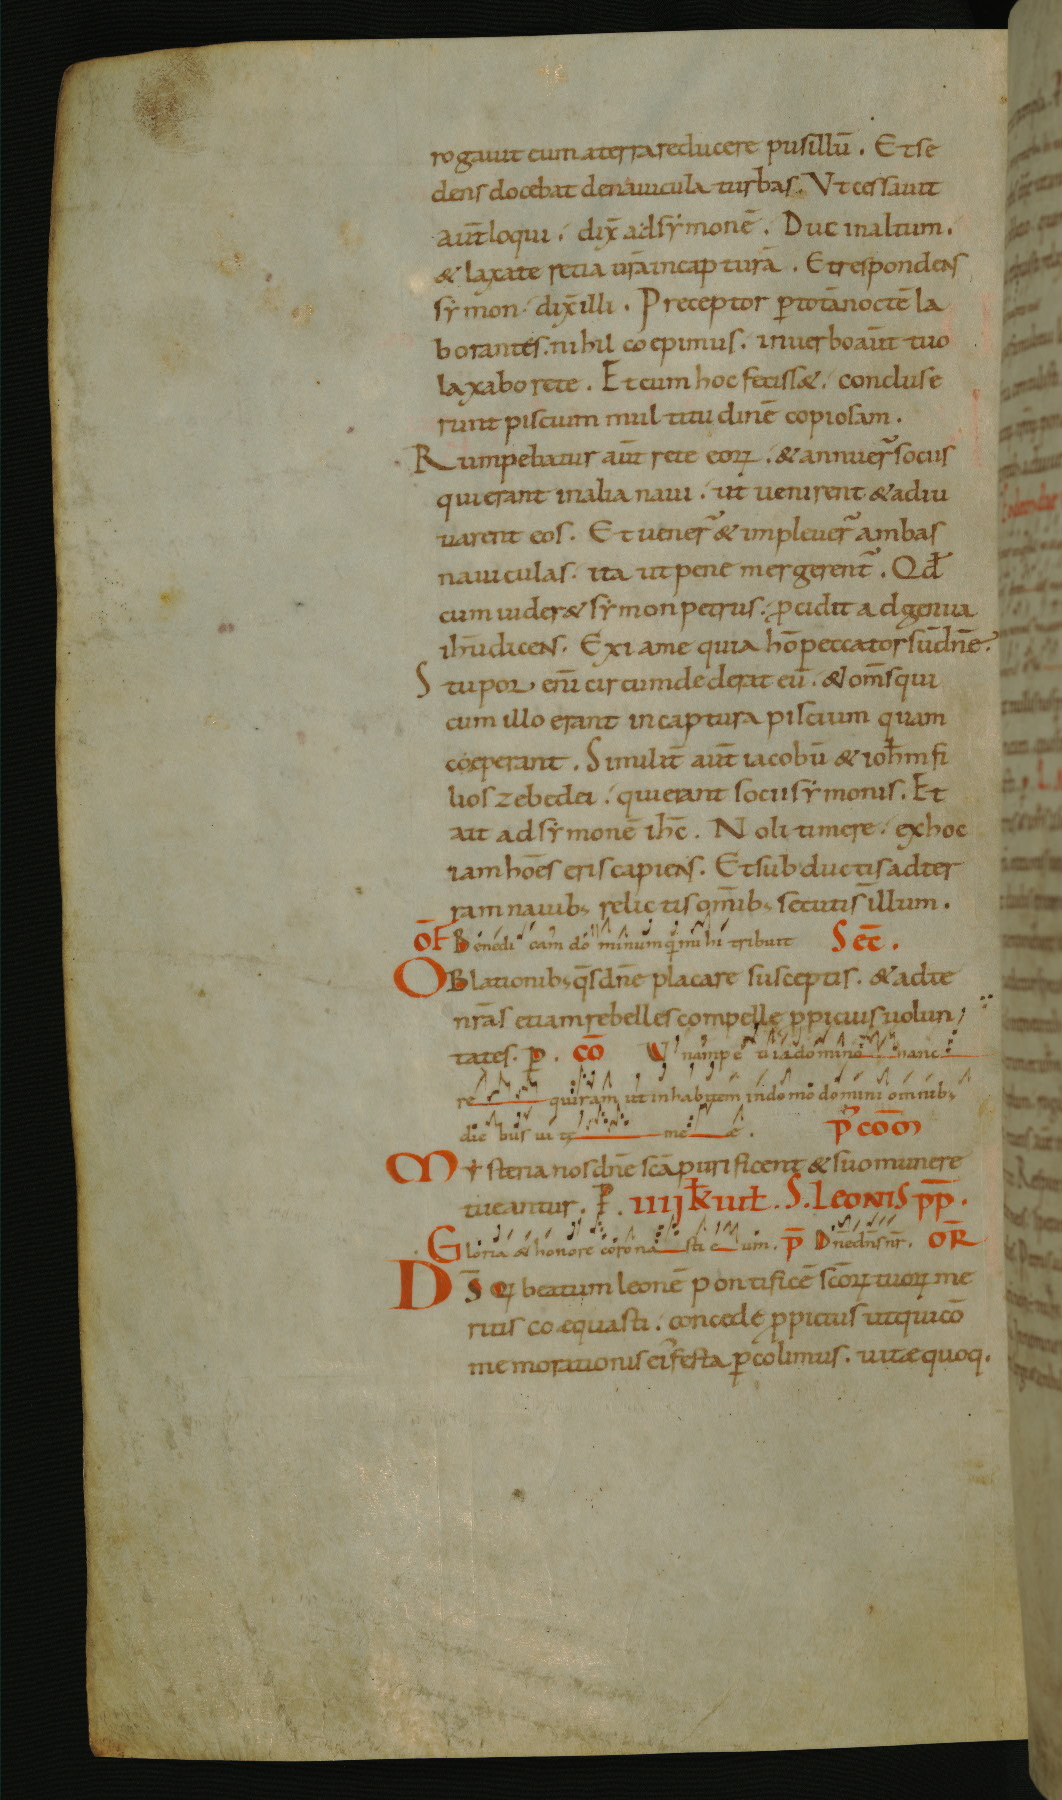 rogauit eum aterra reducere pusillū. Et se
dens docebat denauicula turbas. Vt cessauit
aut̄ loqui. dix̄ adsẏmonē. Duc inaltum.
& laxate retia ur̄a incapturā. Et respondens
sẏmon. dix̄ illi. Preceptor ꝑ totā noctē la
borantes. nihil coepimus. inuerbo aut̄ tuo
laxabo rete. Et cum hoc feciss&. concluse
runt piscium multitudinē copiosam.
Rumpebatur aut̄ rete eoꝝ. & annuer̄ sociis
qui erant inalia naui. ut uenirent & adiu
uarent eos. Et uener̄ & impleuer̄ ambas
nauiculas. ita ut pene mergerent̄. Qd̄
cum uider& sẏmon petrus. ꝓcidit ad genua
ihū dicens. Exi ame quia hō peccator sū dn̄e.
Stupor enī circumdederat eū. & om̄s qui
cum illo erant incaptura piscium quam
coeperant. Similit̄ aut̄ iacobū & ioħm fi
lios zebedei. qui erant socii sẏmonis. Et
ait adsẏmonē ihc̄. Noli timere. ex hoc
iam hoēs eris capiens. Et subductis adter
ram nauibꝫ relictis om̄ibꝫ secuti s̄ illum.
OF̄ Benedicam dominum q̄ mihi tribuit SEC̄.
OBlationibꝫ q̄s dn̄e placare susceptis. & adte
nr̄as etiam rebelles compelle ꝓpicius uolun
tates. ꝑ. CŌ Vnam pe tii adomino hanc
re quiram ut inhabitem indomo domini omnibꝫ
die bus uitę me ę. P̄ COM̄
Mẏsteria nos dn̄e sc̄a purificent & suo munere
tueantur. P. IIIJ k̄ iul̄. S. LEONIS PP̄.
Gloria & honore corona sti e um. P̄ Dn̄e dn̄s nr̄. OR̄
DS̄ q beatum leonē pontificē sc̄oꝝ tuoꝝ me
ritis coaequasti. concede ꝓpicius ut qui cō
memorationis ei᷒ festa ꝑcolimus. uitae quoq.